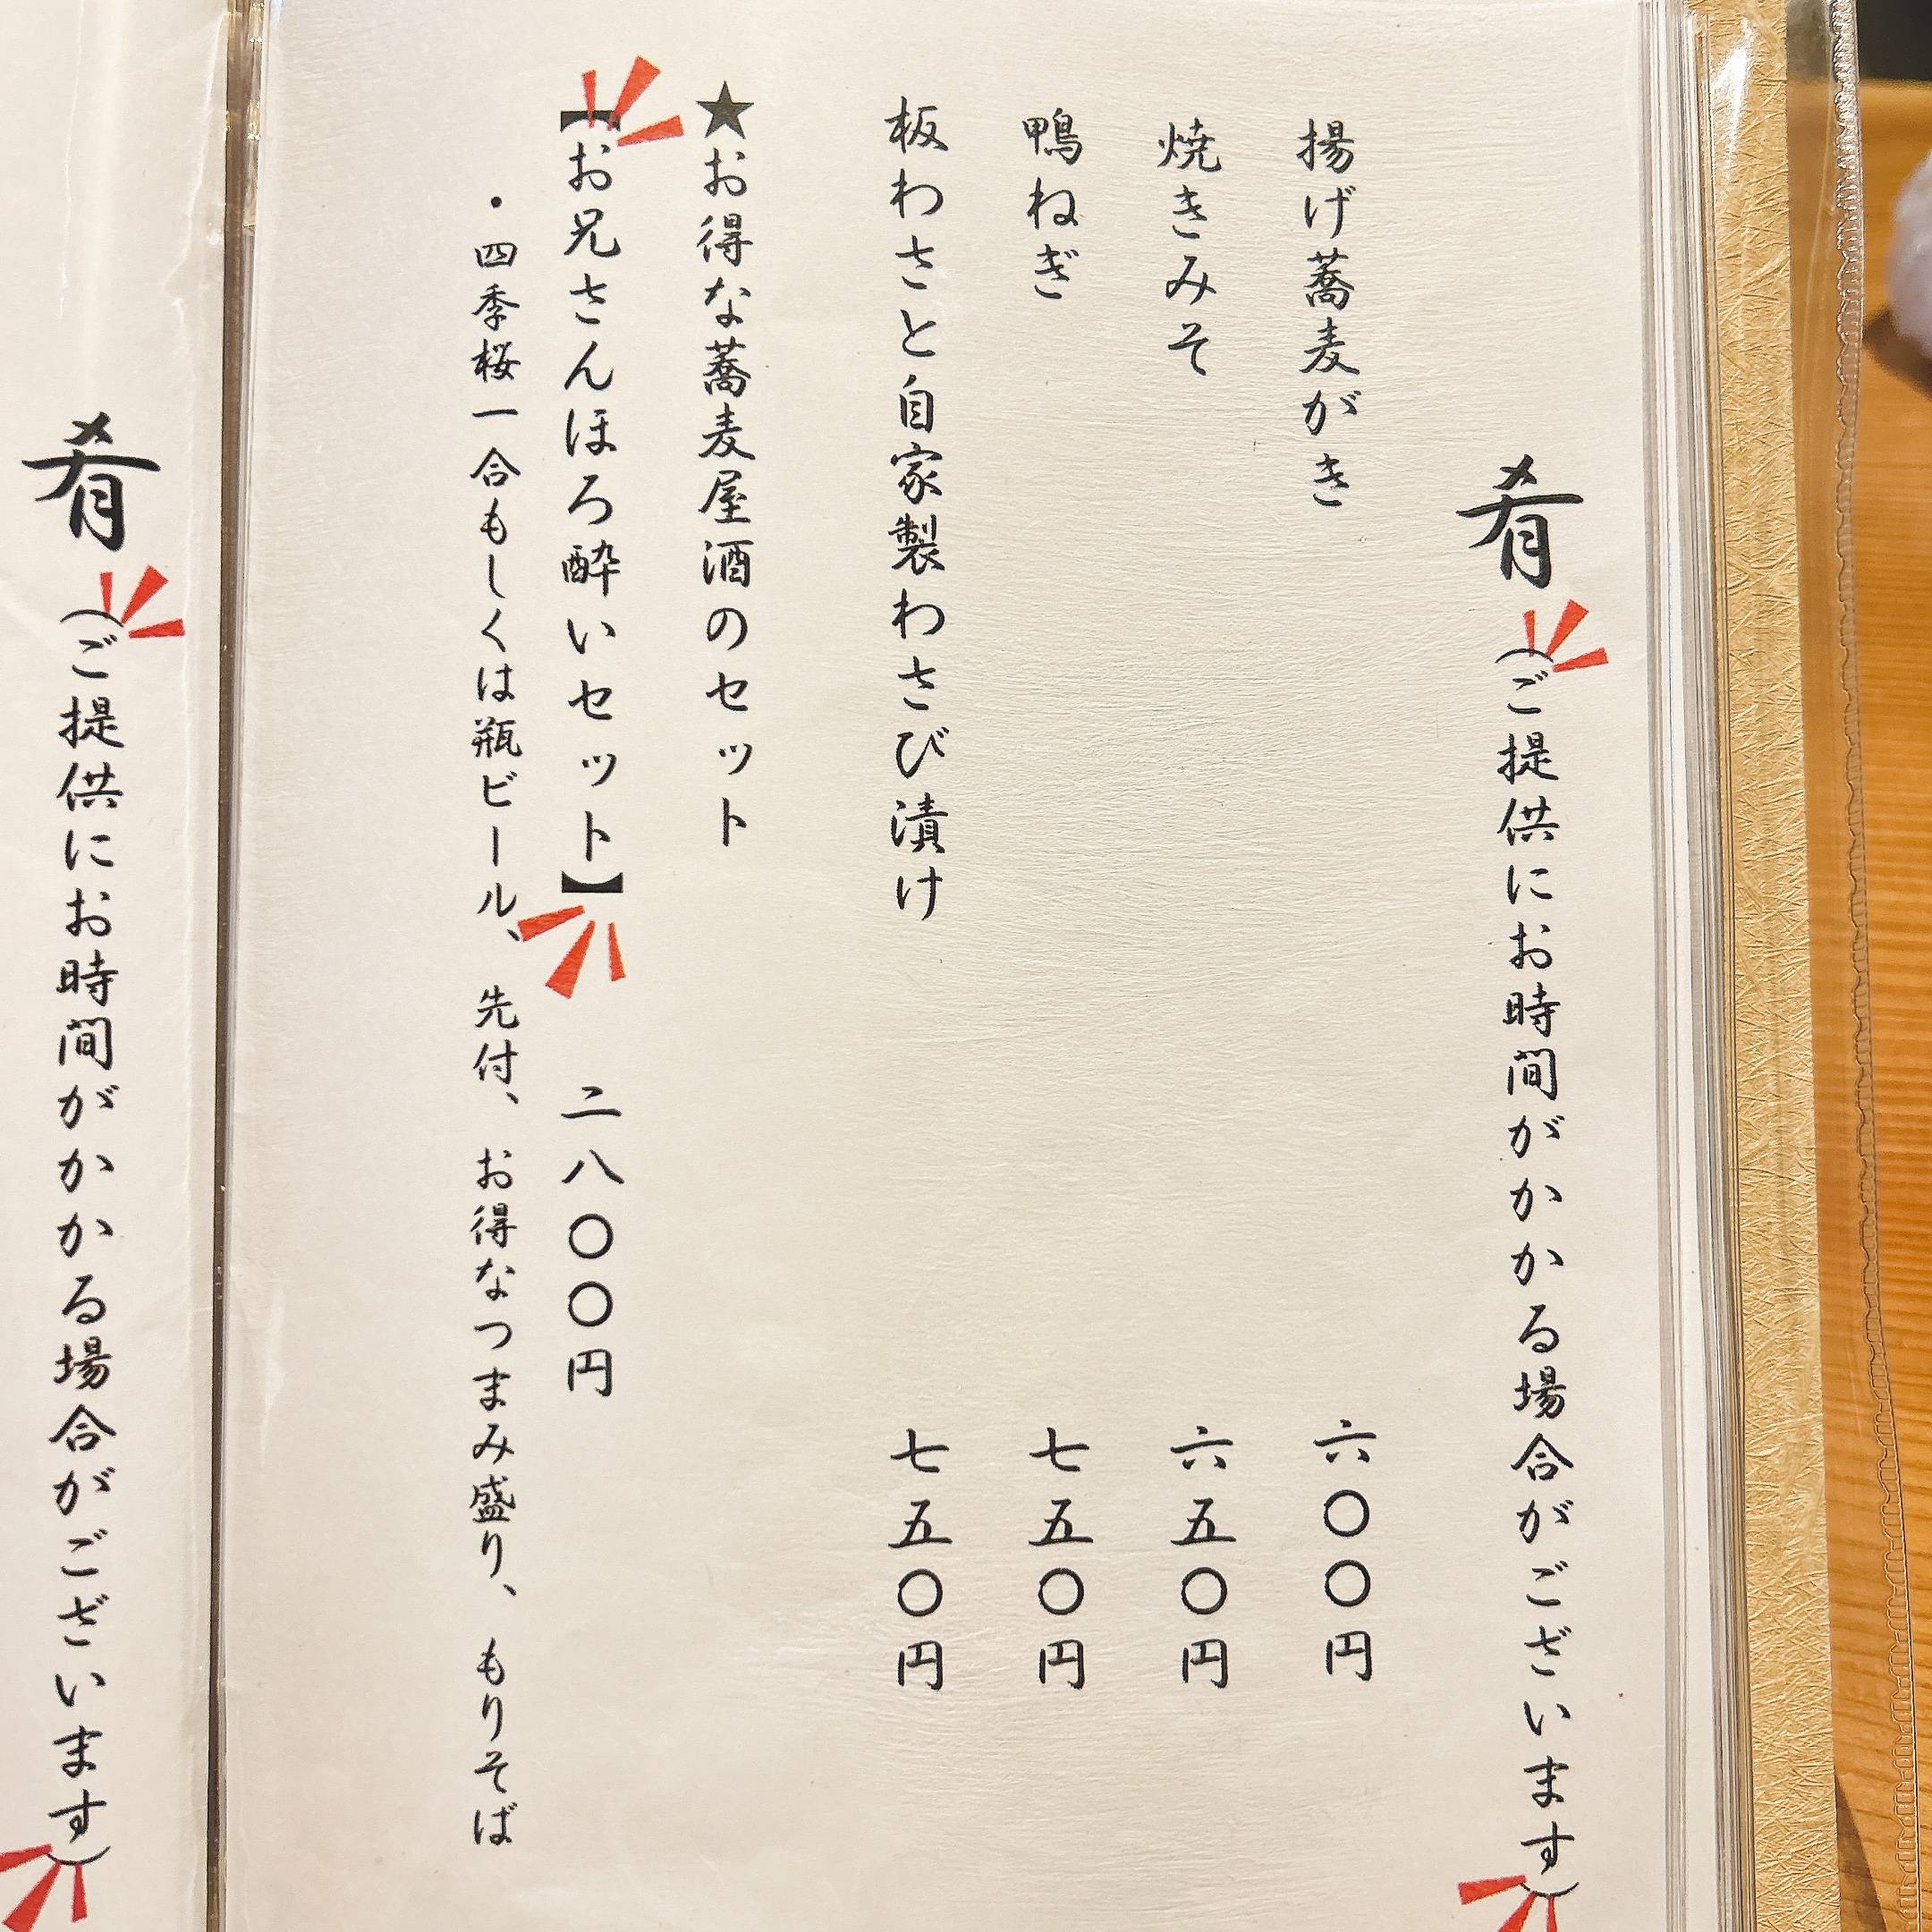 肴（ご提供にお時間がかかる場合がございます）
揚げ蕎麦がき 六〇〇円
焼きみそ 六五〇円
鴨ねぎ 七五〇円
板わさと自家製わさび漬け 七五〇円
★お得な蕎麦屋酒のセット
【お兄さんほろ酔いセット】 二八〇〇円
・四季桜一合もしくは瓶ビール、先付、お得なつまみ盛り、もりそば
肴（ご提供にお時間がかかる場合がございます）